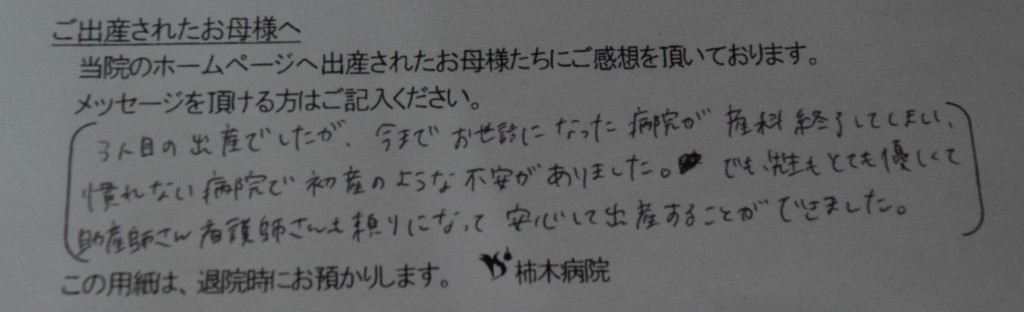 ご出産されたお母様へ
当院のホームページへ出産されたお母様たちにご感想を頂いております。
メッセージを頂ける方はご記入ください。
3人目の出産でしたが、今までお世話になった病院が産科終了してしまい、
慣れない病院で初産のような不安がありました。でも、先生もとても優しくて
助産師さん看護師さんも頼りになって安心して出産することができました。
この用紙は、退院時にお預かりします。 柿木病院